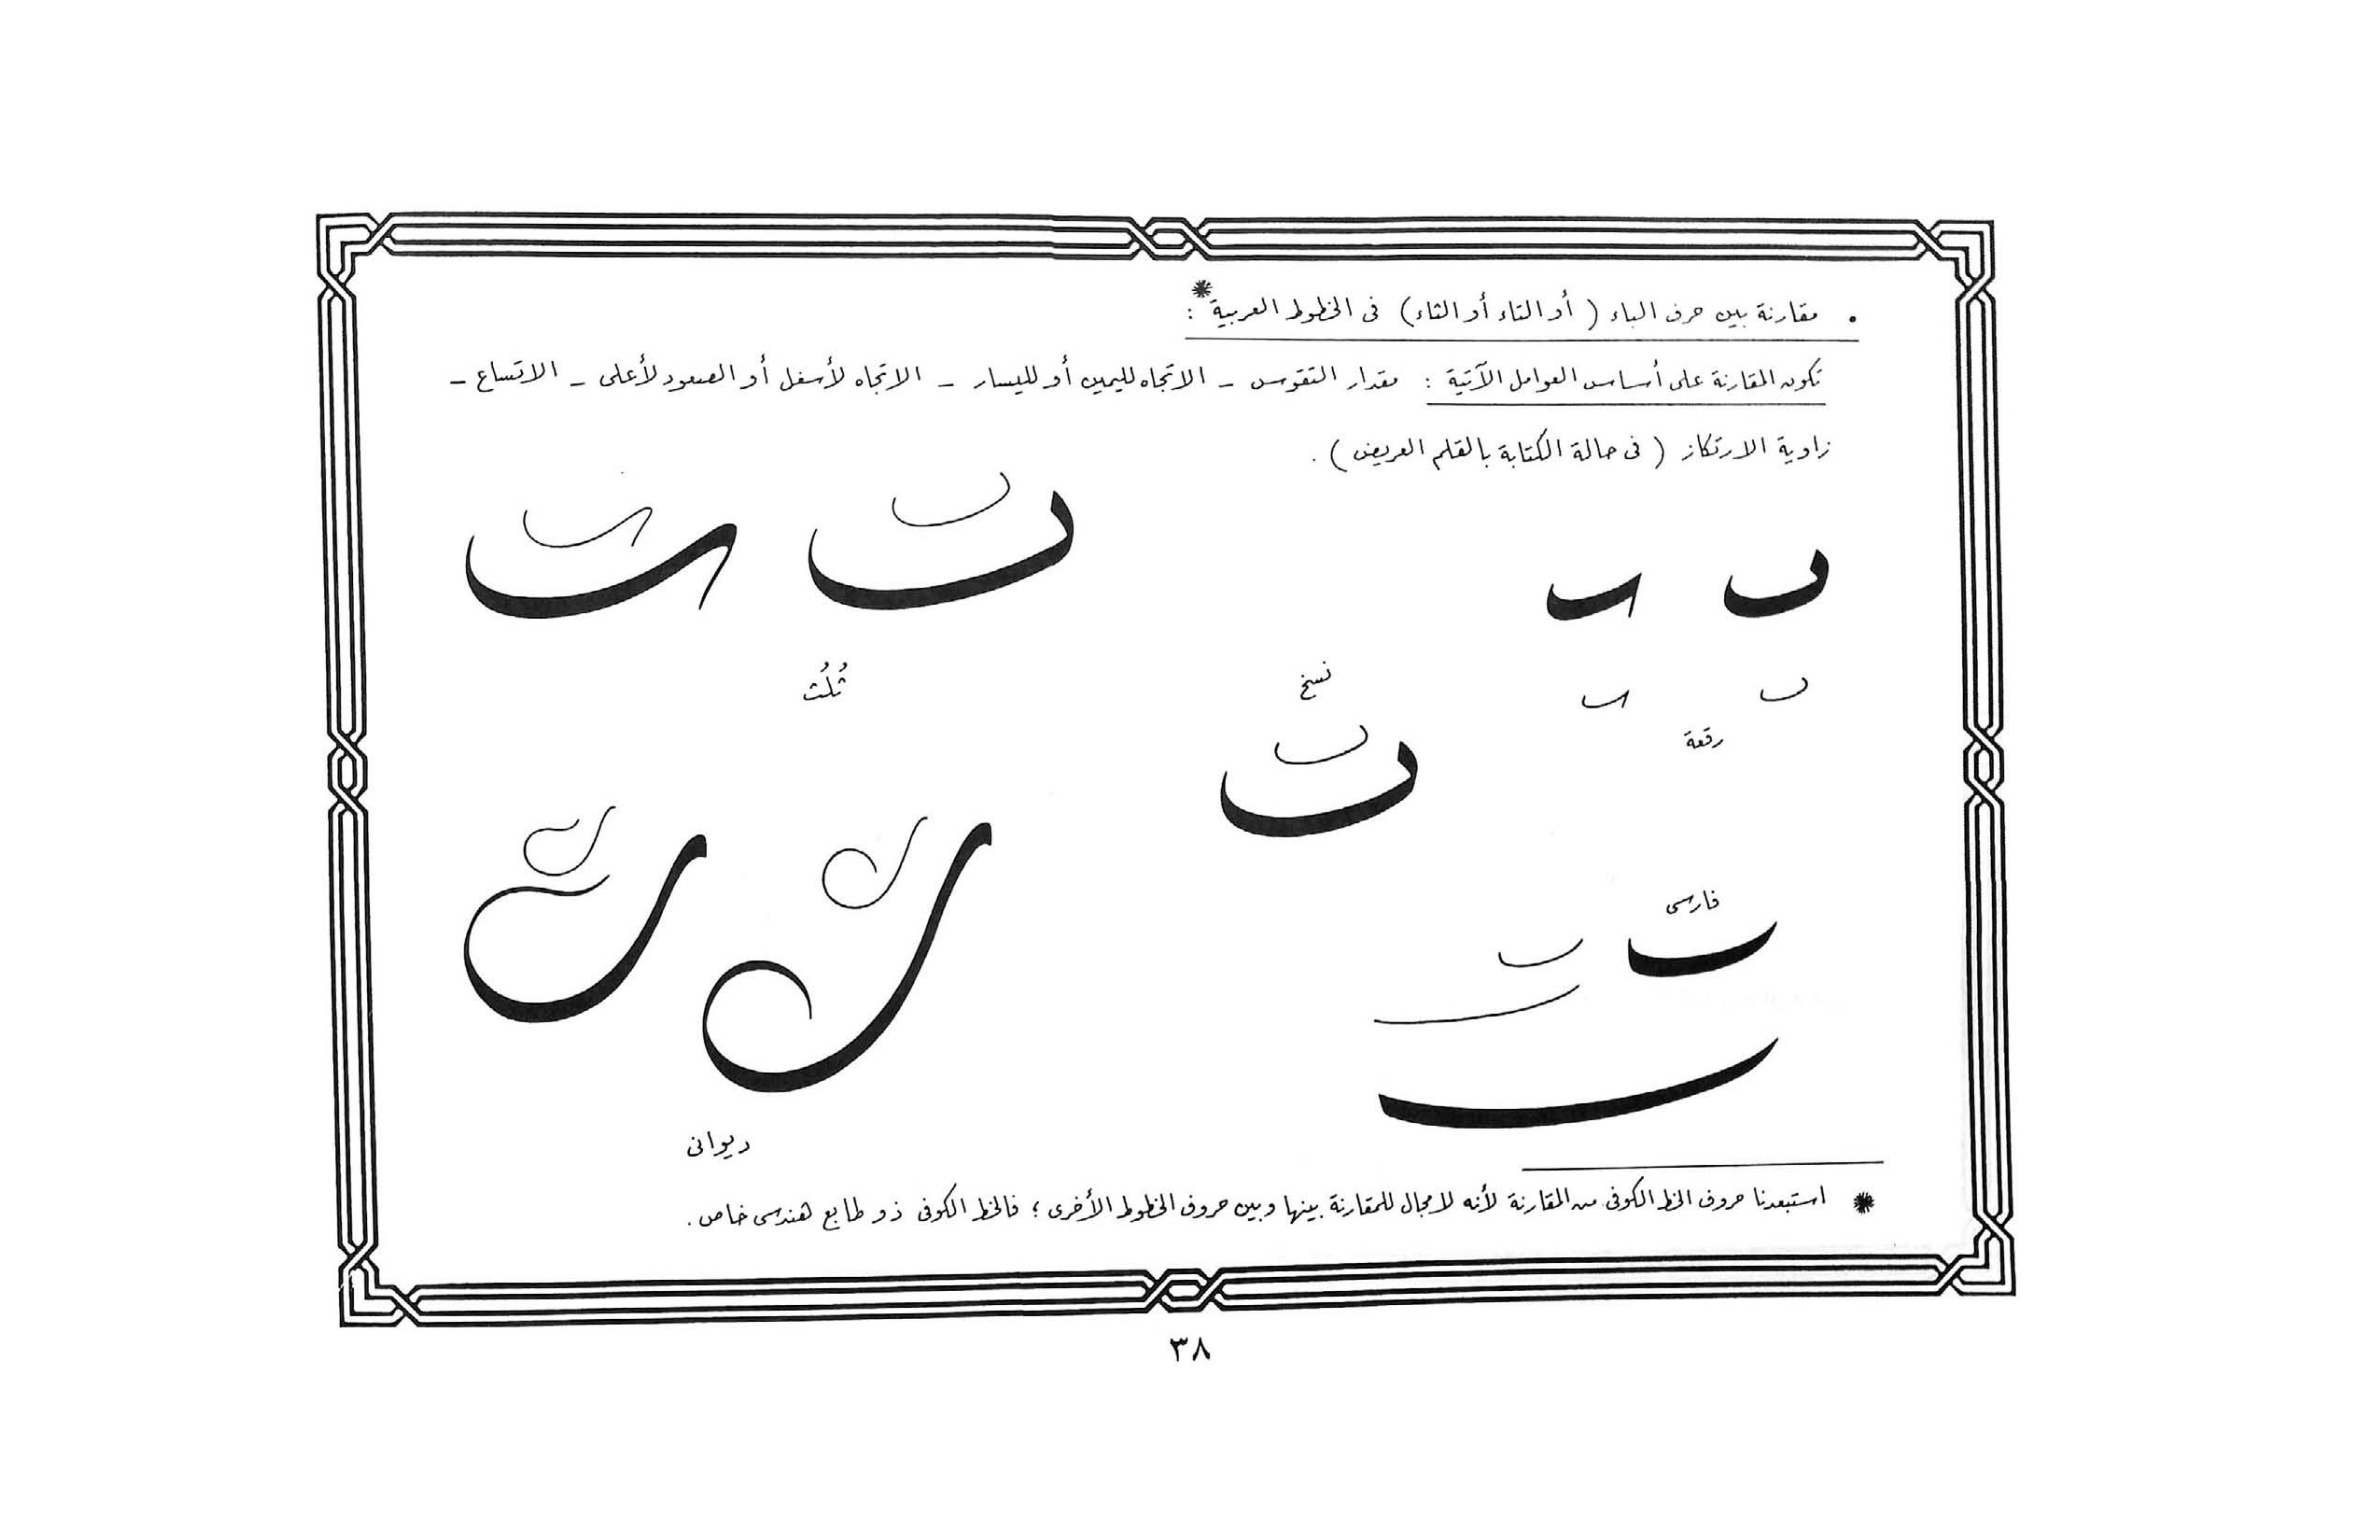 • مقارنة بين حرف الباء ( أو التاء أو الثاء ) فى الخطوط العربية * :
تكون المقارنة على أساس العوامل الآتية : مقدار التقوس - الاتجاه لليمين أو لليسار - الاتجاه لأسفل أو الصعود لأعلى - الاتساع -
زاوية الارتكاز ( فى حالة الكتابة بالقلم العريض ) .
ثُلُث
نسخ
رقعة
فارسى
ديوانى
* استبعدنا حروف الخط الكوفى من المقارنة لأنه لا مجال للمقارنة بينها وبين حروف الخطوط الأخرى ؛ فالخط الكوفى ذو طابع هندسى خاص .
٣٨